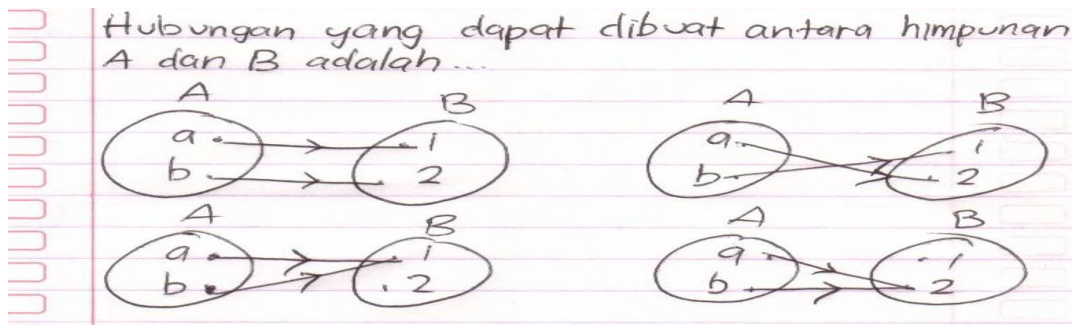 Hubungan yang dapat dibuat antara himpunan
A dan B adalah...
A B A B
a 1 a 1
b 2 b 2
A B A B
a 1 a 1
b 2 b 2